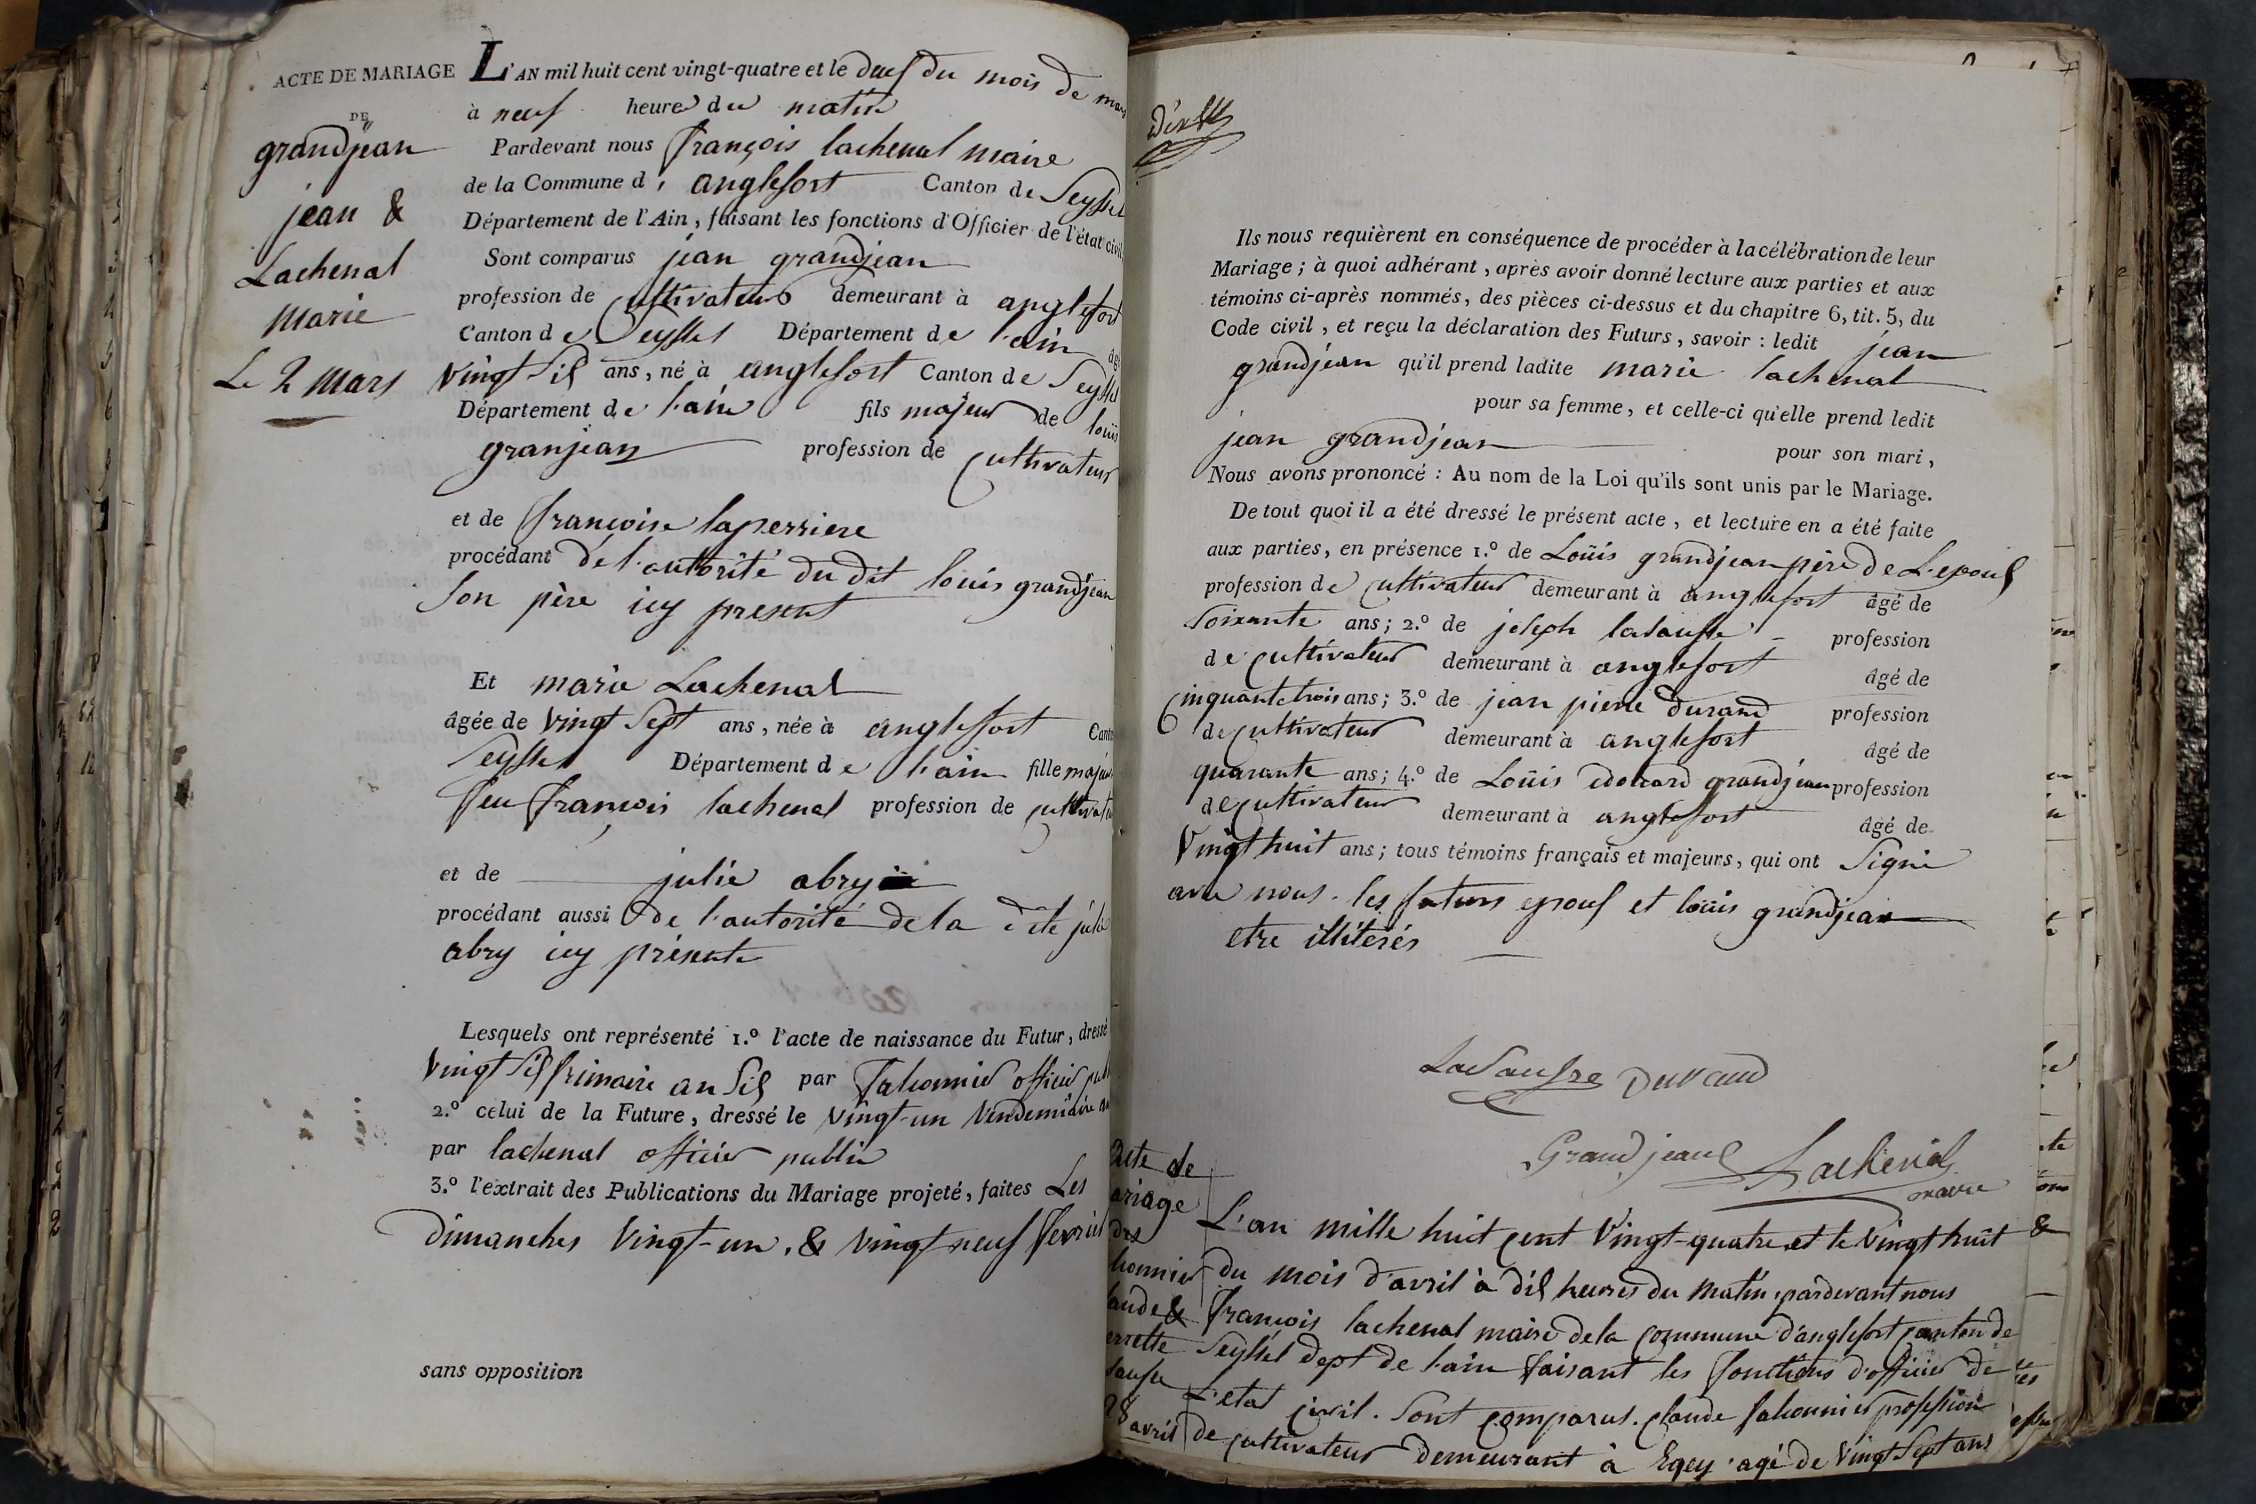 ACTE DE MARIAGE
DE
grandjean
jean &
Lachenal
Marie
Le 2 mars
L'AN mil huit cent vingt-quatre et le deux du mois de mars
à neuf heures du matin
Pardevant nous françois lachenal maire
de la Commune d'anglefort Canton de Seyssel
Département de l'Ain, faisant les fonctions d'Officier de l'état civil
Sont comparus jean grandjean
profession de Cultivateur demeurant à anglefort
Canton de Seyssel Département de l'ain âgé
vingt six ans, né à anglefort Canton de Seyssel
Département de l'ain fils majeur de louis
granjean profession de Cultivateur
et de francoise laperriere
procédant de l'autorité du dit louis grandjean
son père icy present
Et marie Lachenal
âgée de vingt sept ans, née à anglefort Canton
Seyssel Département de l'ain fille majeure
feu francois lachenal profession de cultivateur
et de julie abry
procédant aussi de l'autorité de la dite julie
abry icy présente
Lesquels ont représenté 1.º l'acte de naissance du Futur, dressé
vingt six frimaire an six par falconnier officier publ
2.º celui de la Future, dressé le vingt-un Vendemiaire an
par lachenal officier public
3.º l'extrait des Publications du Mariage projeté, faites Les
dimanches vingt-un, & vingt neuf fevrier
sans opposition
Ils nous requièrent en conséquence de procéder à la célébration de leur
Mariage; à quoi adhérant, après avoir donné lecture aux parties et aux
témoins ci-après nommés, des pièces ci-dessus et du chapitre 6, tit. 5, du
Code civil, et reçu la déclaration des Futurs, savoir : ledit jean
grandjean qu'il prend ladite marie lachenal
pour sa femme, et celle-ci qu'elle prend ledit
jean grandjean pour son mari,
Nous avons prononcé : Au nom de la Loi qu'ils sont unis par le Mariage.
De tout quoi il a été dressé le présent acte, et lecture en a été faite
aux parties, en présence 1.º de Loüis grandjean père de L'epoux
profession de Cultivateur demeurant à anglefort âgé de
soixante ans; 2.º de joseph lasausse profession
de cultivateur demeurant à anglefort âgé de
Cinquante trois ans; 3.º de jean pierre durand profession
de cultivateur demeurant à anglefort âgé de
quarante ans; 4.º de Loüis edouard grandjean profession
de cultivateur demeurant à anglefort âgé de
Vingt huit ans; tous témoins français et majeurs, qui ont Signé
avec nous. les futurs epoux et loüis grandjean
etre illiterés
LaSausse Durand
Grandjean Lachenal
maire
Acte de
ariage
des
lconnier
aude &
errette
sausse
28
avril
L'an mille huit cent Vingt-quatre et le vingt huit
du mois d'avril à dix heures du matin, pardevant nous
françois lachenal maire de la commune d'anglefort canton de
Seyssel dept de l'ain faisant les fonctions d'officier de
L'etat civil. Sont comparus. claude falconnier profession
de cultivateur demeurant à Eqey agé de Vingt Sept ans